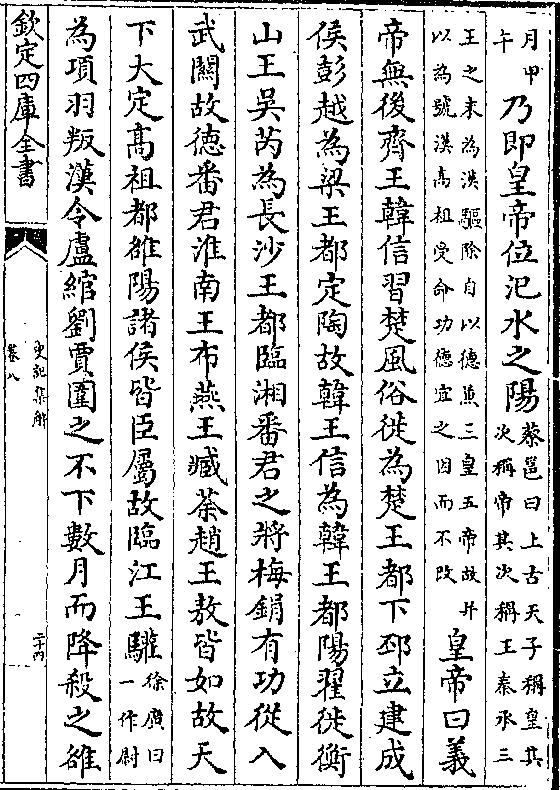 月甲
午
乃即皇帝位汜水之陽
蔡邕曰上古天子稱皇其
次稱帝其次稱王秦承三
王之末為漢驅除自以德兼三皇五帝故并
以為號漢高祖受命功德宜之因而不改
皇帝曰義
帝無後齊王韓信習楚風俗徙為楚王都下邳立建成
侯彭越為梁王都定陶故韓王信為韓王都陽翟徙衡
山王吳芮為長沙王都臨湘番君之將梅鋗有功從入
武關故德番君淮南王布燕王臧荼趙王敖皆如故天
下大定高祖都雒陽諸侯皆臣屬故臨江王驩
徐廣曰
一作尉
為項羽叛漢令盧綰劉賈圍之不下數月而降殺之雒
欽定四庫全書
史記集解
卷八
二十四